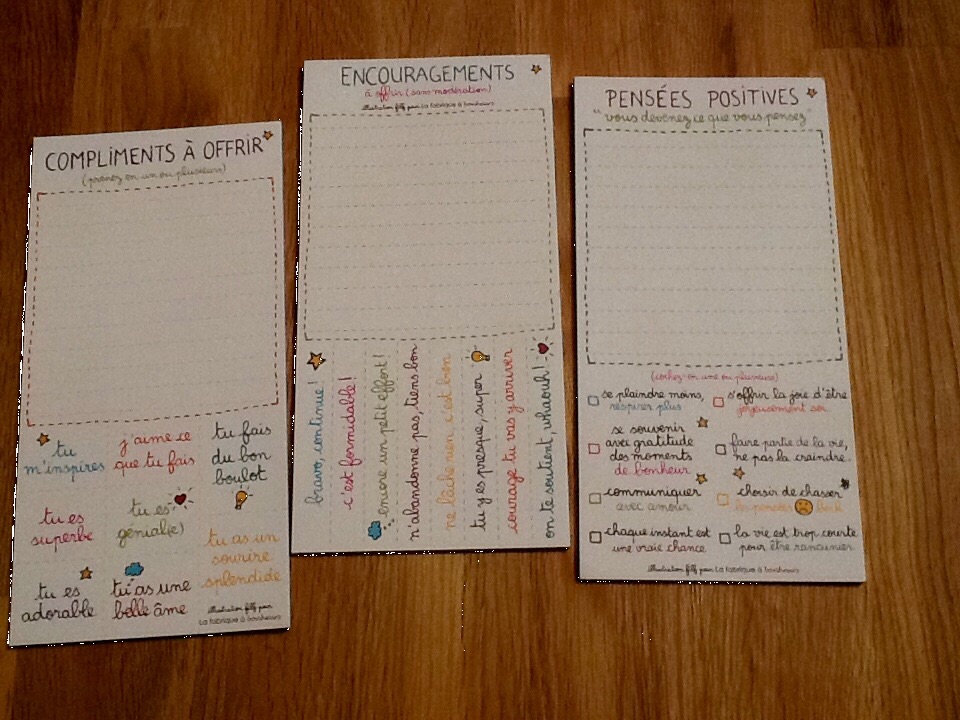 COMPLIMENTS À OFFRIR
(prenez en un ou plusieurs)
tu
m'inspires
j'aime ce
que tu fais
tu fais
du bon
boulot
tu es
superbe
tu es
génial(e)
tu as un
sourire
splendide
tu es
adorable
tu as une
belle âme
illustration filf pour
La fabrique à bonheurs
ENCOURAGEMENTS
à offrir (sans modération)
illustration filf pour La fabrique à bonheurs
bravo, continue !
c'est formidable !
encore un petit effort !
n'abandonne pas, tiens bon
ne lâche rien, c'est bon
tu y es presque, super
courage tu vas y arriver
on te soutient, whaouh !
PENSÉES POSITIVES
"vous devenez ce que vous pensez"
(cochez-en une ou plusieurs)
se plaindre moins,
respirer plus
s'offrir la joie d'être
joyeusement soi
se souvenir
avec gratitude
des moments
de bonheur
faire partie de la vie,
ne pas la craindre.
communiquer
avec amour
choisir de chasser
les pensées
chaque instant est
une vraie chance
la vie est trop courte
pour être rancunier
illustration filf pour La fabrique à bonheurs